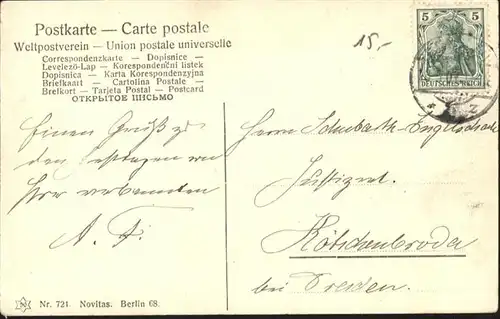 Postkarte — Carte postale
Weltpostverein — Union postale universelle
Correspondenzkarte — Dopisnice —
Levelező-Lap — Korespondenční listek
Dopisnica — Karta Korespondencyjna
Briefkaart — Cartolina Postale —
Brefkort — Tarjeta Postal — Postcard
ОТКРЫТОЕ ПИСЬМО
15.-
5 5
DEUTSCHES REICH
Einen Gruß zu
den Festtagen von
Ihrer verbannten
A. F.
Herrn
Justizrat
Kötschenbroda
bei Dresden.
Nr. 721. Novitas. Berlin 68.